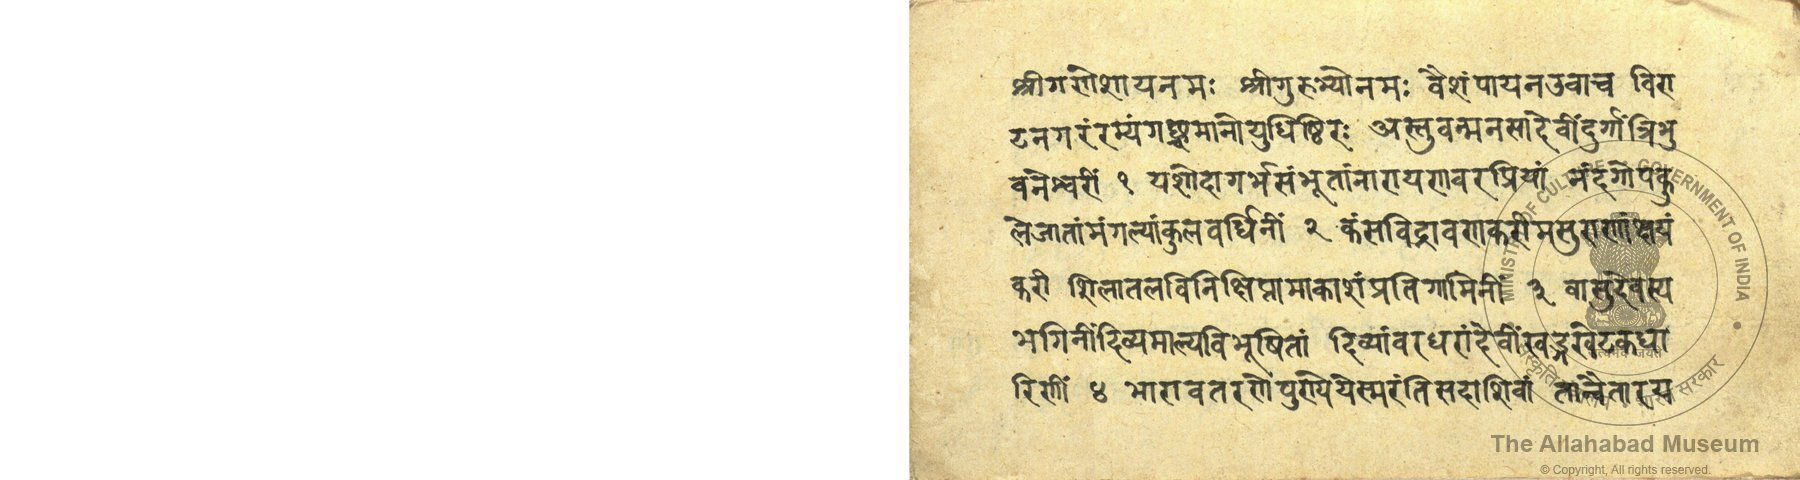 श्रीगणेशायनमः श्रीगुरुभ्योनमः वैशंपायनउवाच विरा
टनगरंरम्यंगछमानोयुधिष्ठिरः अस्तुवन्मनसादेवींदुर्गांत्रिभु
वनेश्वरीं १ यशोदागर्भसंभूतांनारायणवरप्रियां नंदगोपकु
लेजातांमंगल्यांकुलवर्धिनीं २ कंसविद्रावणकरीमसुराणांक्षयं
करीं शिलातलविनिक्षिप्तामाकाशंप्रतिगामिनीं ३ वासुदेवस्य
भगिनींदिव्यमाल्यविभूषितां दिव्यांबरधरांदेवींखड्गखेटकधा
रिणीं ४ भारावतरणेपुण्येयेस्मरंतिसदाशिवां तान्वैतारय
MINISTRY OF CULTURE GOVERNMENT OF INDIA
The Allahabad Museum
© Copyright, All rights reserved.